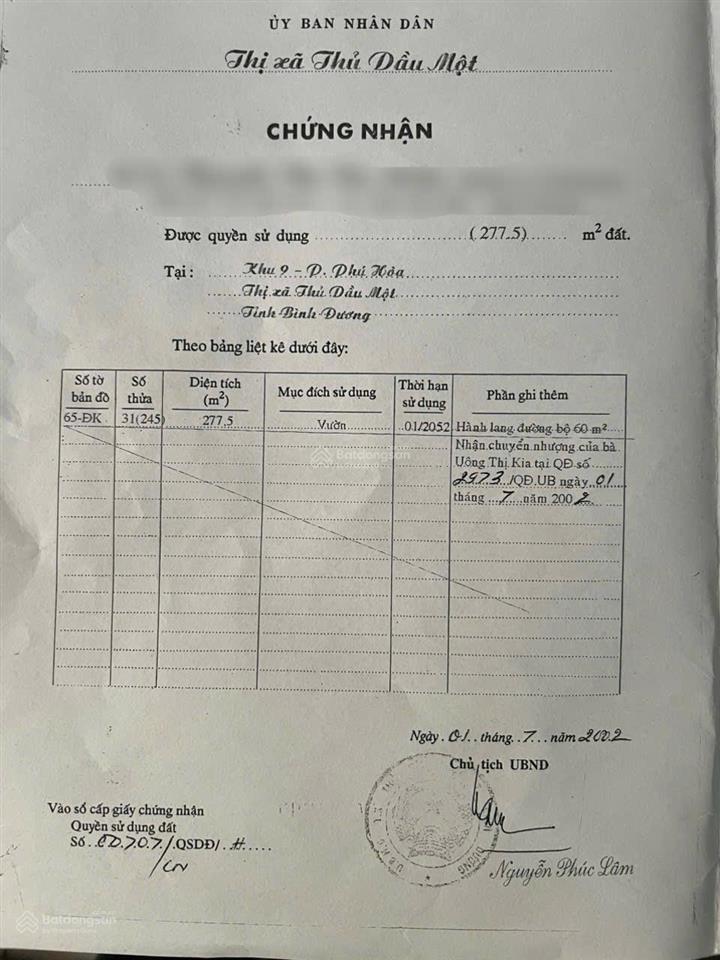 ỦY BAN NHÂN DÂN
Thị xã Thủ Dầu Một
CHỨNG NHẬN
Được quyền sử dụng (277.5) m² đất.
Tại: Khu 9 - P. Phú Hòa
Thị xã Thủ Dầu Một
Tỉnh Bình Dương
Theo bảng liệt kê dưới đây:
Số tờ bản đồ | Số thửa | Diện tích (m²) | Mục đích sử dụng | Thời hạn sử dụng | Phần ghi thêm
65-ĐK | 31(245) | 277.5 | Vườn | 01/2052 | Hành lang đường bộ 60 m²
Nhận chuyển nhượng của bà
Uông Thị Kia tại QĐ số
2973/QĐ.UB ngày 01
tháng 7 năm 2002
Batdongsan
Ngày 01 tháng 7 năm 2002
Chủ tịch UBND
Vào sổ cấp giấy chứng nhận
Quyền sử dụng đất
Số QSDĐ/ H
/CN
Nguyễn Phúc Lâm
Batdongsan